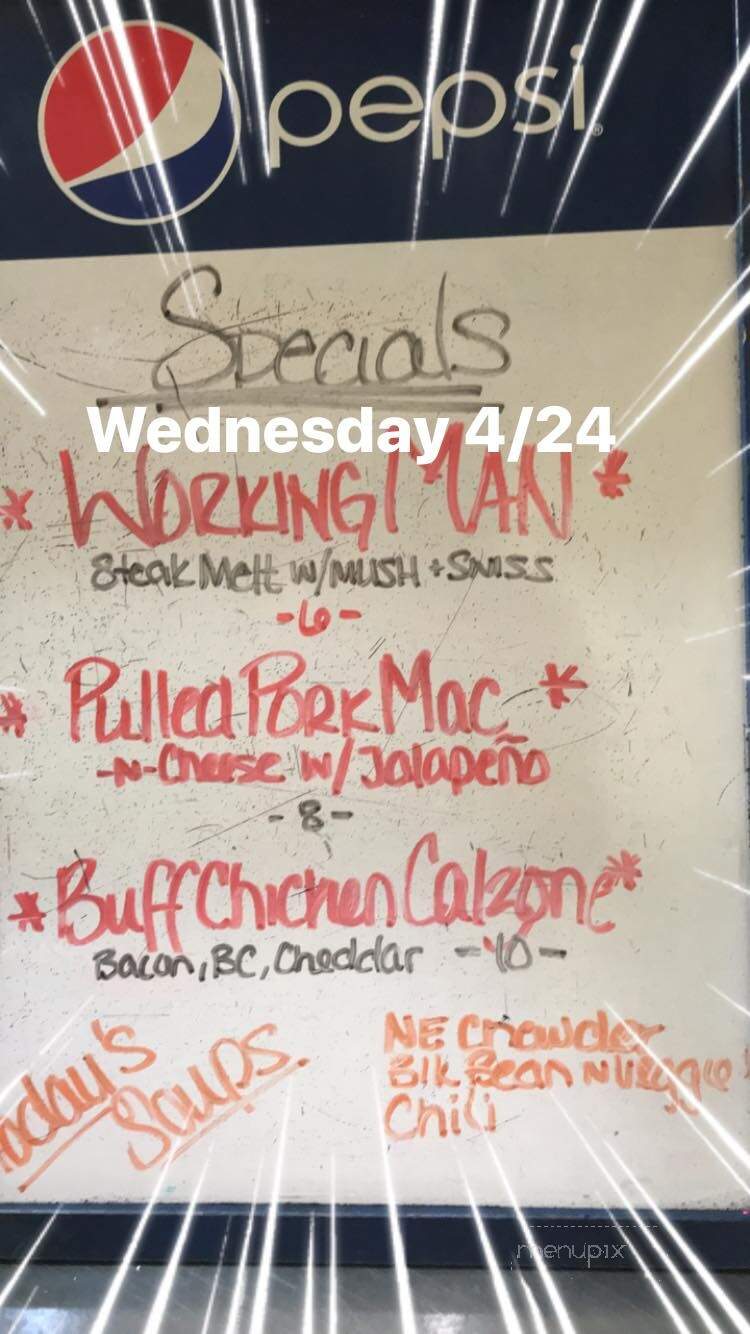 pepsi®
Specials
Wednesday 4/24
* WORKING MAN *
Steak Melt w/MUSH + SWISS
-6-
* Pulled Pork Mac *
-N-Cheese w/ Jalapeño
-8-
* Buff Chicken Calzone *
Bacon, BC, Cheddar -10-
Today's
Soups.
NE Chowder
Blk Bean N Veggie
Chili
menupix